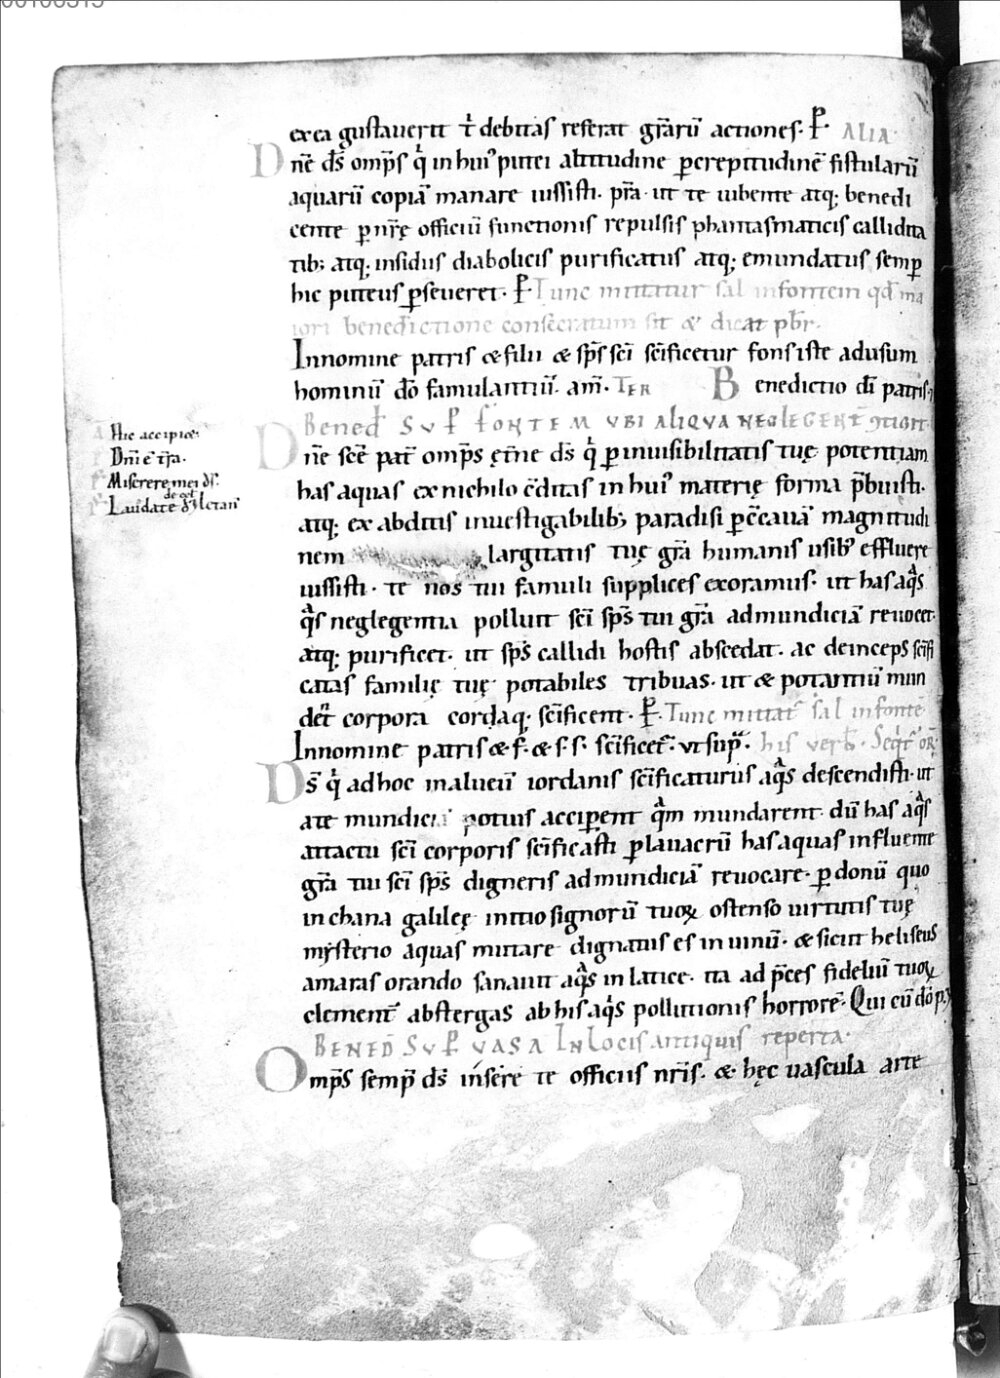 ex ea gustauerit t̄ debitas referat gr̄arū actiones. P̄. ALIA
Dn̄e ds̄ om̄ps qͥ in huiꝰ putei altitudine ꝑ crepitudinē fistularū
aquarū copiā manare iussisti. p̄ra. ut te iubente atq; benedi
cente ꝑ nr̄ę officiū functionis repulsis phantasmaticis callidita
tib; atq; insidiis diabolicis purificatus atq; emundatus semꝑ
hic puteus ꝑseueret. P̄. Tunc mittatur sal in fontem qd̄ ma
iori benedictione consecratum sit & dicat pb̄r.
Innomine patris & filii & sp̄s sc̄i sc̄ificetur fons iste adusum
hominū dō famulantiū. am̄. TER Benedictio dī patris
Bened̄ SVP̄ FONTEM VBI ALIQVA NEGLEGENT̄
Dn̄e sc̄e pat̄ om̄ps ęt̄ne ds̄ qͥ ꝑ inuisibilitatis tuę potentiam
has aquas ex nichilo c̄ditas in huiꝰ materię forma p̄buisti.
atq; ex abditis inuestigabilib; paradisi ꝑ c̄cauā magnitudi
nem largitatis tuę gr̄a humanis usibꝰ effluere
iussisti. te nos tui famuli supplices exoramus. ut has aqͣs
qͣs neglegentia polluit sc̄i sp̄s tui gr̄a admundiciā reuocet.
atq; purificet. ut sp̄s callidi hostis abscedat. ac deinceps sc̄ifi
catas familię tuę potabiles tribuas. ut & potantiū mun
det̄ corpora cordaq. sc̄ificent. P̄. Tunc mittat̄ sal in fonte
Innomine patris & f. & s. s. sc̄ificet̄. ut supͣ. his verb̄. Seqt̄ or̄
Ds̄ qͥ adhoc inalueū iordanis sc̄ificaturus aqͣs descendisti. ut
a te mundici potius acciperent qͣm mundarent. dū has aqͣs
attactu sc̄i corporis sc̄ificasti ꝑ lauacrū has aquas influente
gr̄a tui sc̄i sp̄s digneris admundiciā reuocare. ꝑ donū quo
in chana galileę initio signorū tuoꝝ ostenso uirtutis tuę
mẏsterio aquas mutare dignatus es in uinū. & sicut heliseus
amaras orando sanauit aqͣs in latice. ita ad p̄ces fideliū tuoꝝ
clement̄ abstergas ab his aqͣs pollutionis horrorē. Qui cū dō p.
BENED̄ SVP̄ VASA IN Locis antiquis reperta.
Om̄ps semꝑ ds̄ insere te officiis nr̄is. & hęc uascula arte
Hic accipiet
Dn̄i ē t̄ra.
Miserere mei ds̄.
Laudate
de cęl